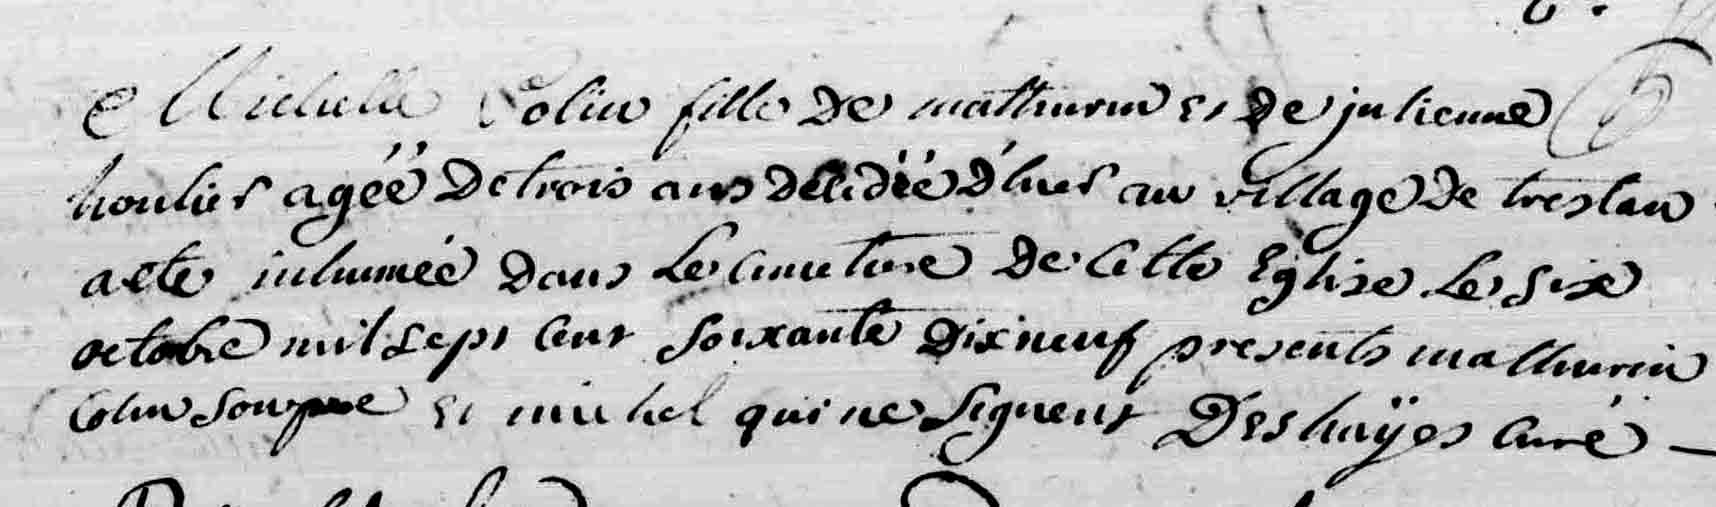 Michelle Colin fille de mathurin et de julienne
houlier agéé de trois ans décédéé d'hier au village de trestan
a ete inhumeé dans Le cimetiere de Cette Eglise Le six
octobre mil sept Cent soixante dix neuf presents mathurin
Colin son pere Et michel qui ne signent Deshaÿes Curé